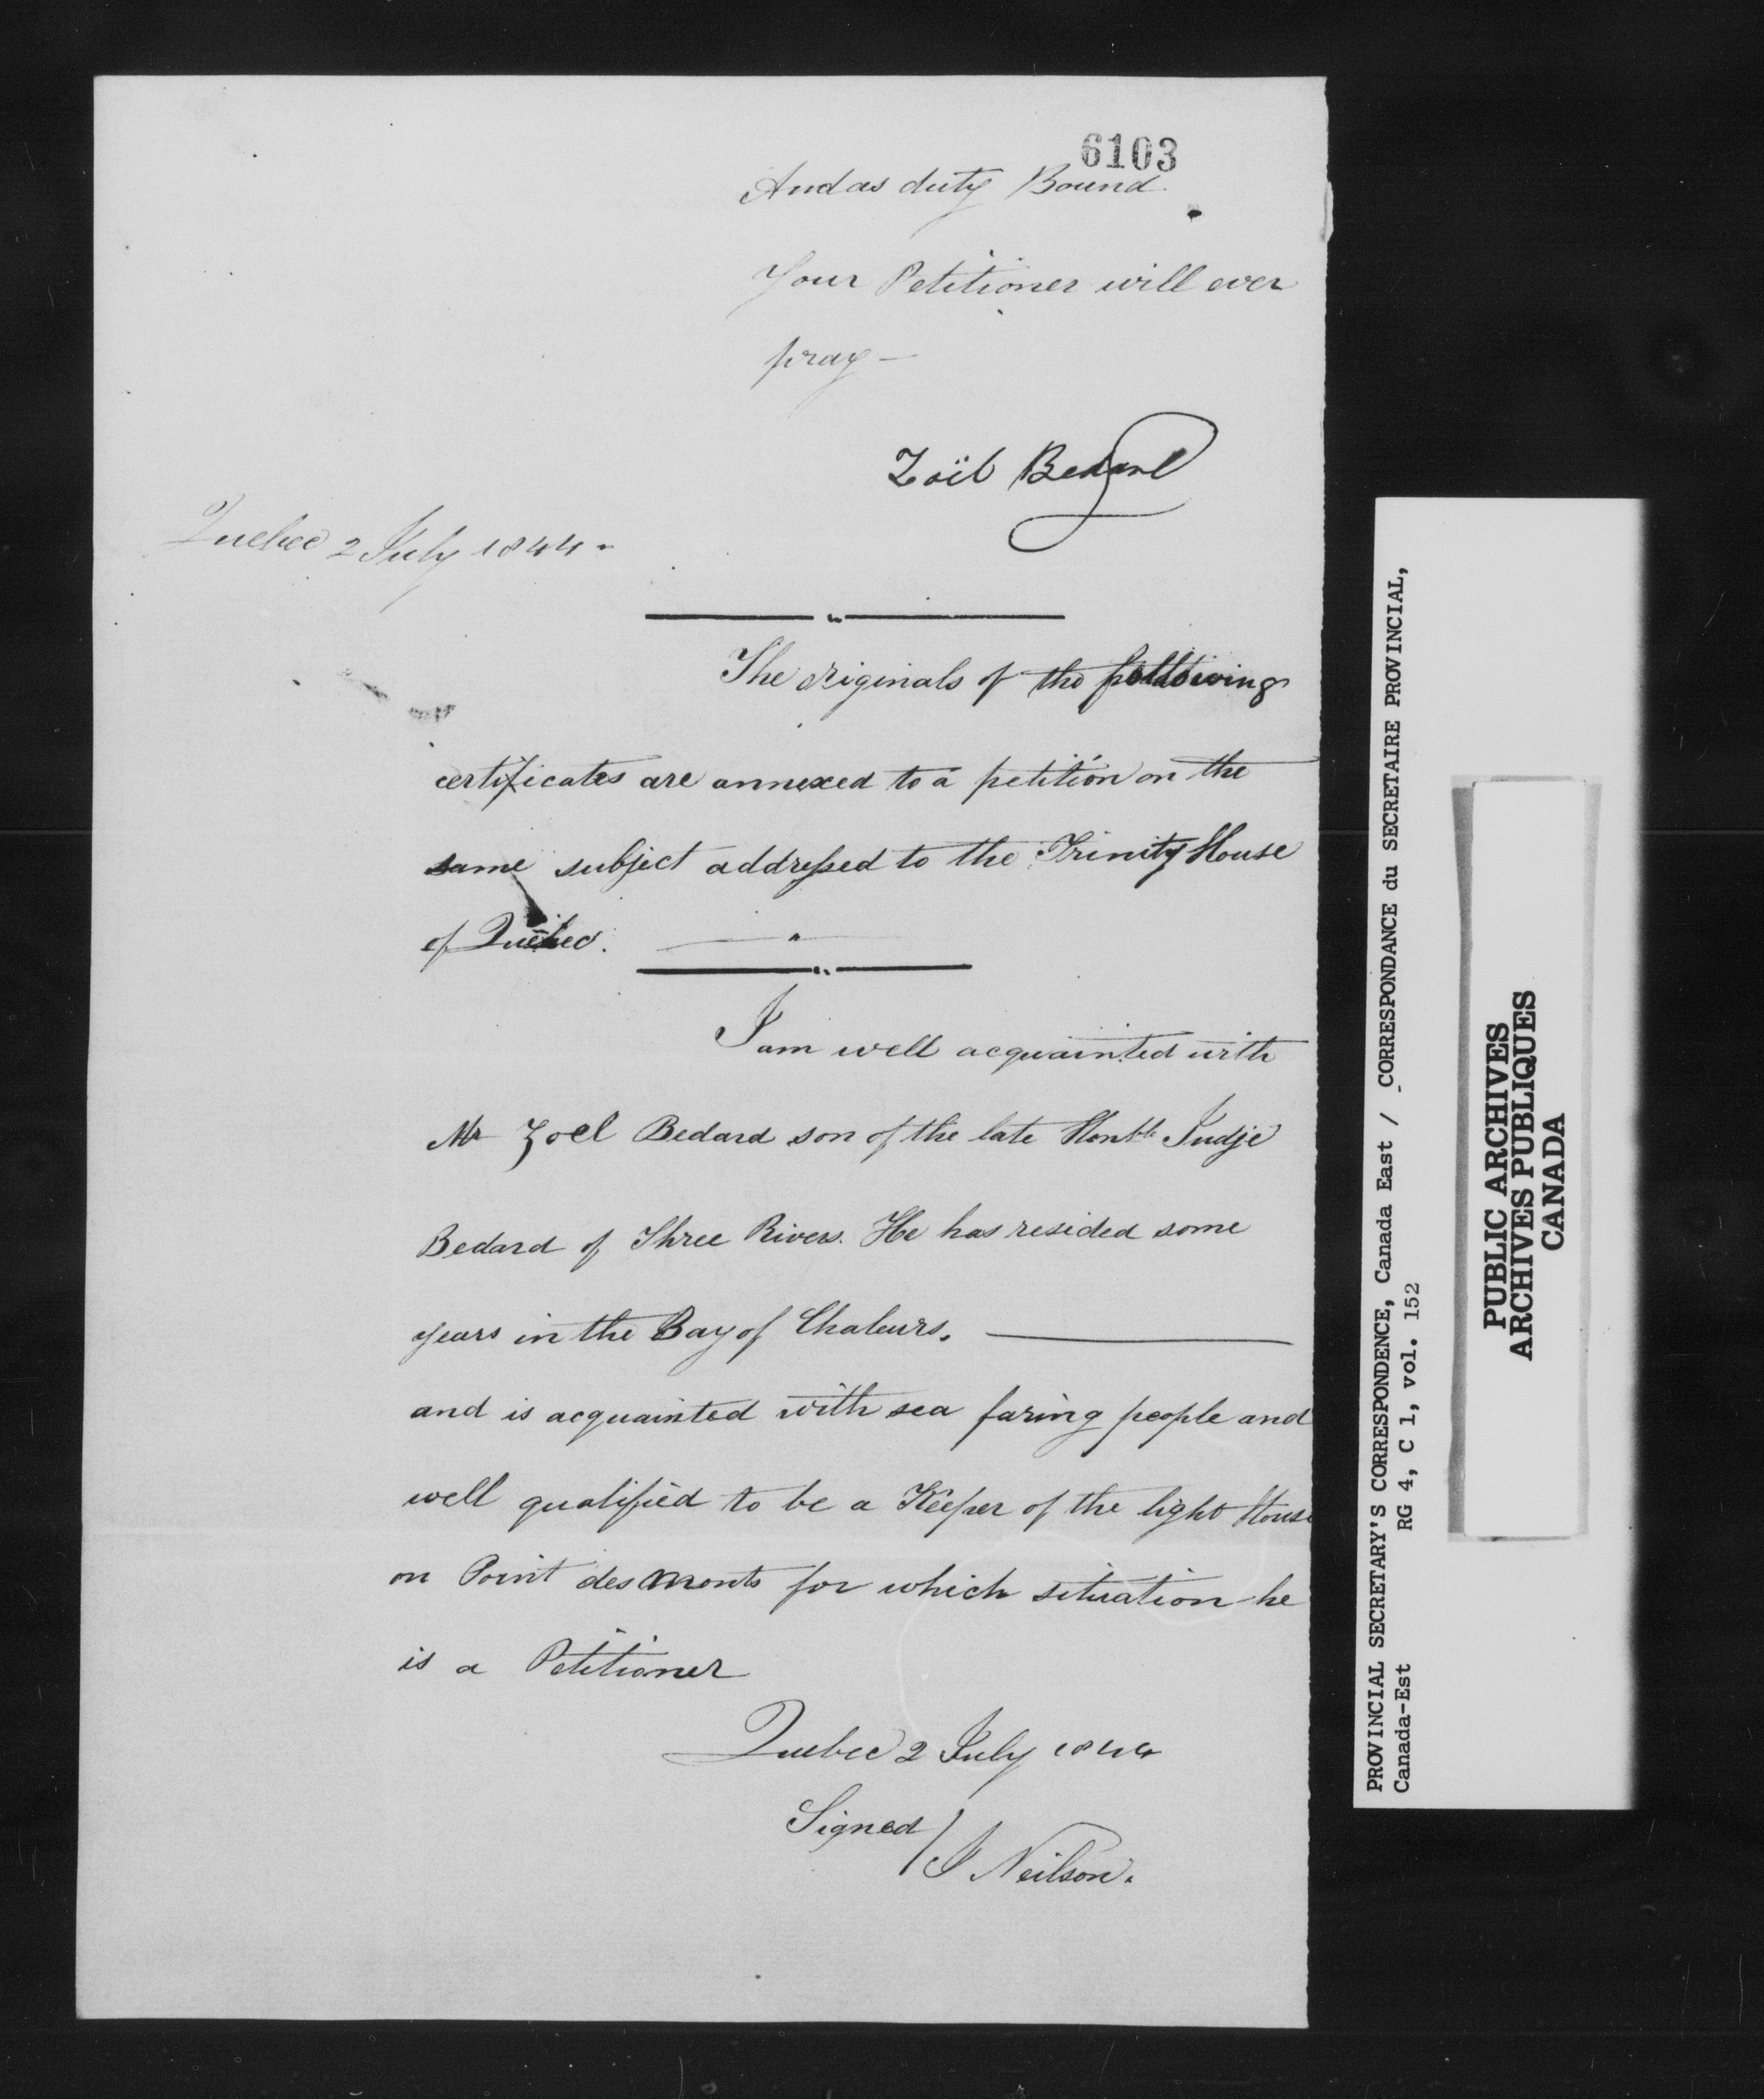 6103
And as duty Bound.
Your Petitioner will ever
pray —
Zoël Bedard
Quebec 2 July 1844 -
The originals of the following
certificates are annexed to a petition on the
same subject addressed to the Trinity House
of Quebec.
I am well acquainted with
Mr Zoel Bedard son of the late Honble Judje
Bedard of Three Rivers. He has resided some
years in the Bay of Chaleurs.
and is acquainted with sea faring people and
well qualified to be a Keeper of the light House
on Point des Monts for which situation he
is a Petitioner
Quebec 2 July 1844
Signed / J Neilson.
PROVINCIAL SECRETARY'S CORRESPONDENCE, Canada East / CORRESPONDANCE du SECRETAIRE PROVINCIAL,
Canada-Est RG 4, C 1, vol. 152
PUBLIC ARCHIVES
ARCHIVES PUBLIQUES
CANADA